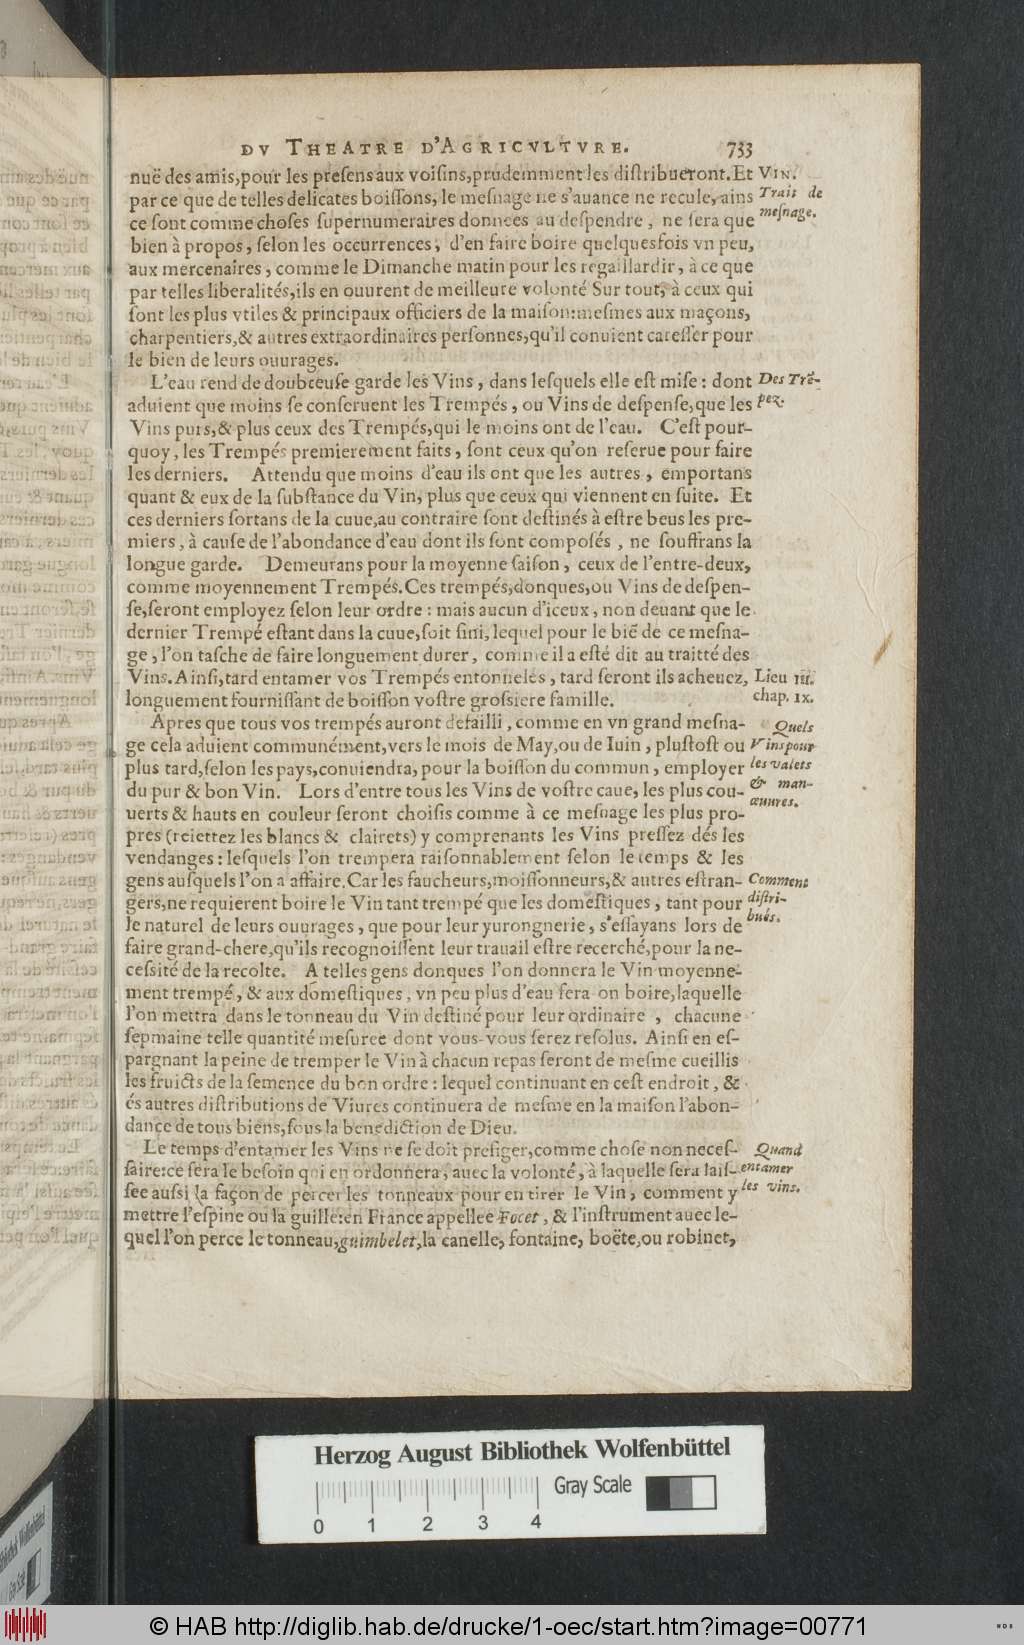 DV THEATRE D'AGRICVLTVRE. 733
nuë des amis,pour les presens aux voisins,prudemment les distribueront.Et VIN.
par ce que de telles delicates boissons, le mesnage ne s'auance ne recule, ains Trait de
ce sont comme choses supernumeraires donnees au despendre, ne sera que mesnage.
bien à propos, selon les occurrences, d'en faire boire quelquesfois vn peu,
aux mercenaires, comme le Dimanche matin pour les regaillardir, à ce que
par telles liberalités,ils en ouurent de meilleure volonté Sur tout, à ceux qui
sont les plus vtiles & principaux officiers de la maison:mesmes aux maçons,
charpentiers,& autres extraordinaires personnes,qu'il conuient caresser pour
le bien de leurs ouurages.
L'eau rend de doubteuse garde les Vins, dans lesquels elle est mise: dont Des Trē-
aduient que moins se conseruent les Trempés, ou Vins de despense,que les pez.
Vins purs,& plus ceux des Trempés,qui le moins ont de l'eau. C'est pour-
quoy, les Trempés premierement faits, sont ceux qu'on reserue pour faire
les derniers. Attendu que moins d'eau ils ont que les autres, emportans
quant & eux de la substance du Vin, plus que ceux qui viennent en suite. Et
ces derniers sortans de la cuue,au contraire sont destinés à estre beus les pre-
miers, à cause de l'abondance d'eau dont ils sont composés, ne souffrans la
longue garde. Demeurans pour la moyenne saison, ceux de l'entre-deux,
comme moyennement Trempés.Ces trempés,donques,ou Vins de despen-
se,seront employez selon leur ordre: mais aucun d'iceux, non deuant que le
dernier Trempé estant dans la cuue,soit fini, lequel pour le biē de ce mesna-
ge, l'on tasche de faire longuement durer, comme il a esté dit au traitté des
Vins.Ainsi,tard entamer vos Trempés entonnelés, tard seront ils acheuez, Lieu III.
longuement fournissant de boisson vostre grossiere famille. chap. IX.
Apres que tous vos trempés auront defailli, comme en vn grand mesna- Quels
ge cela aduient communément,vers le mois de May,ou de Iuin, plustost ou Vins pour
plus tard,selon les pays,conuiendra, pour la boisson du commun, employer les valets
du pur & bon Vin. Lors d'entre tous les Vins de vostre caue, les plus cou- & man-
uerts & hauts en couleur seront choisis comme à ce mesnage les plus pro- œuures.
pres (reiettez les blancs & clairets) y comprenants les Vins pressez dés les
vendanges: lesquels l'on trempera raisonnablement selon le temps & les
gens ausquels l'on a affaire.Car les faucheurs,moissonneurs,& autres estran- Comment
gers,ne requierent boire le Vin tant trempé que les domestiques, tant pour distri-
le naturel de leurs ouurages, que pour leur yurongnerie, s'essayans lors de bués.
faire grand-chere,qu'ils recognoissent leur trauail estre recerché,pour la ne-
cessité de la recolte. A telles gens donques l'on donnera le Vin moyenne-
ment trempé, & aux domestiques, vn peu plus d'eau sera on boire,laquelle
l'on mettra dans le tonneau du Vin destiné pour leur ordinaire, chacune
sepmaine telle quantité mesuree dont vous-vous serez resolus. Ainsi en es-
pargnant la peine de tremper le Vin à chacun repas seront de mesme cueillis
les fruicts de la semence du bon ordre: lequel continuant en cest endroit, &
és autres distributions de Viures continuera de mesme en la maison l'abon-
dance de tous biens,sous la benediction de Dieu.
Le temps d'entamer les Vins ne se doit prefiger,comme chose non neces- Quand
saire:ce sera le besoin qui en ordonnera, auec la volonté, à laquelle sera lais- entamer
see aussi la façon de percer les tonneaux pour en tirer le Vin, comment y les vins.
mettre l'espine ou la guille:en France appellee Focet, & l'instrument auec le-
quel l'on perce le tonneau,guimbelet,la canelle, fontaine, boëte,ou robinet,
Herzog August Bibliothek Wolfenbüttel
Gray Scale
0 1 2 3 4
© HAB http://diglib.hab.de/drucke/1-oec/start.htm?image=00771